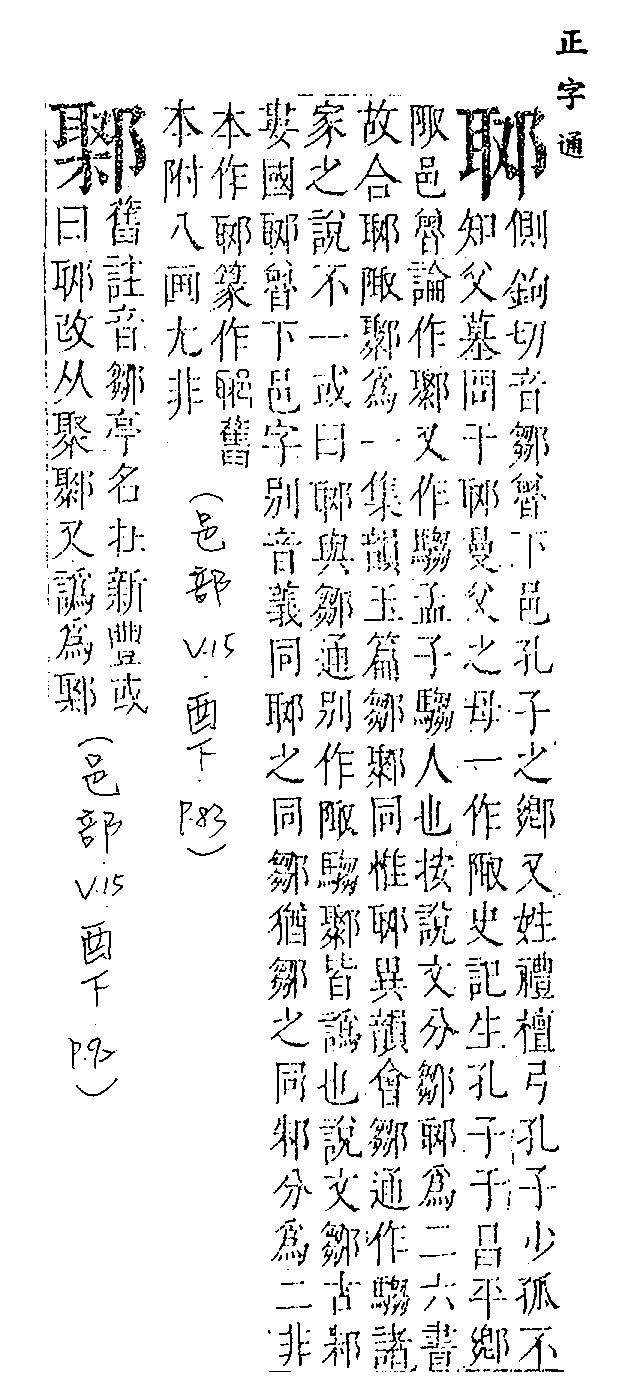 正字通
郰
側鉤切音鄒魯下邑孔子之鄉又姓禮檀弓孔子少孤不
知父墓問于郰曼父之母一作陬史記生孔子于昌平鄉
陬邑魯論作鄹又作騶孟子騶人也按說文分鄒郰爲二六書
故合郰陬鄹爲一集韻玉篇鄒鄹同惟郰異韻會鄒通作騶諸
家之說不一或曰郰與鄒通別作陬騶鄹皆譌也說文鄒古邾
婁國郰魯下邑字別音義同郰之同鄒猶鄒之同邾分爲二非
本作郰篆作舊
本附八画尤非
(邑部 V.15 酉下 P.83)
鄹
舊註音鄒亭名在新豐或
曰郰改从聚鄹又譌爲
(邑部 V.15 酉下 P.92)